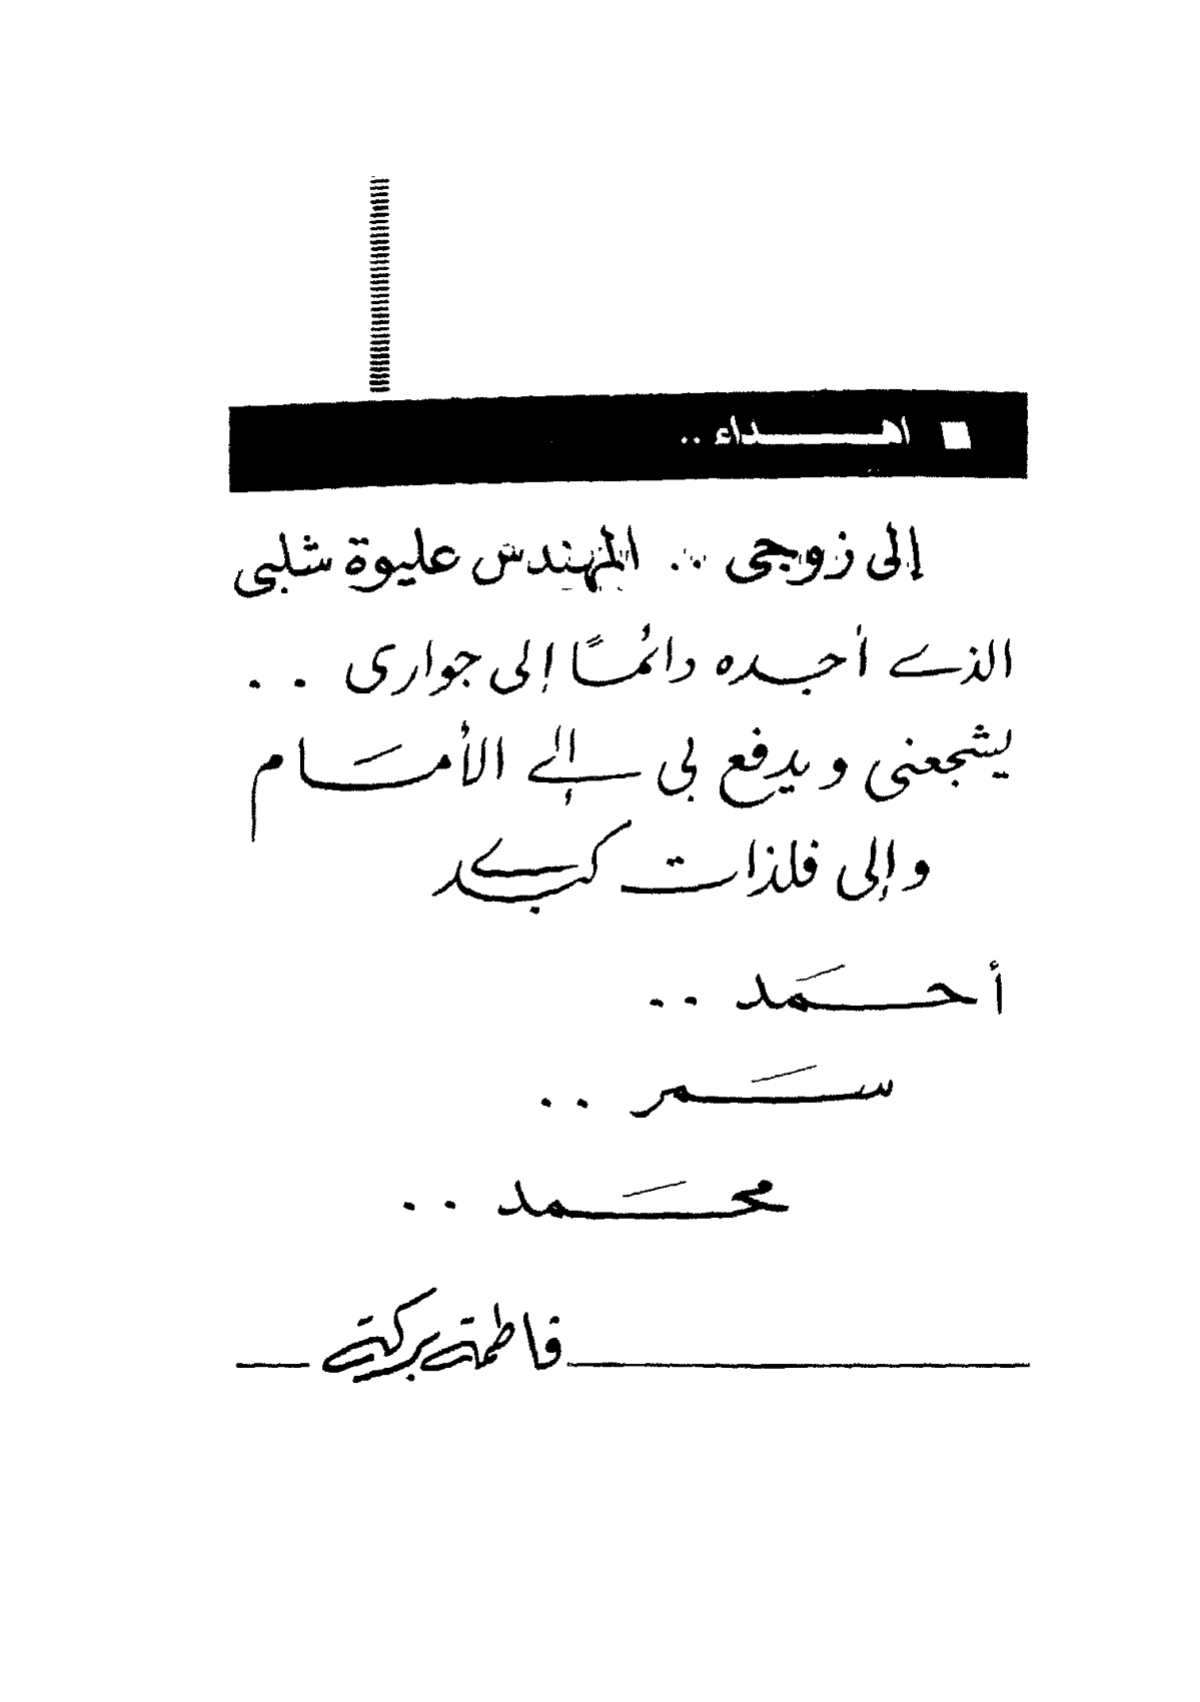 اهـــداء ..
إلى زوجى .. المهندس عليوة شلبى
الذى أجده دائمًا إلى جوارى ..
يشجعنى ويدفع بى إلى الأمَام
وإلى فلذات كبدى
أحـمَد ..
سـمَر ..
محـمَد ..
فاطمة بركة